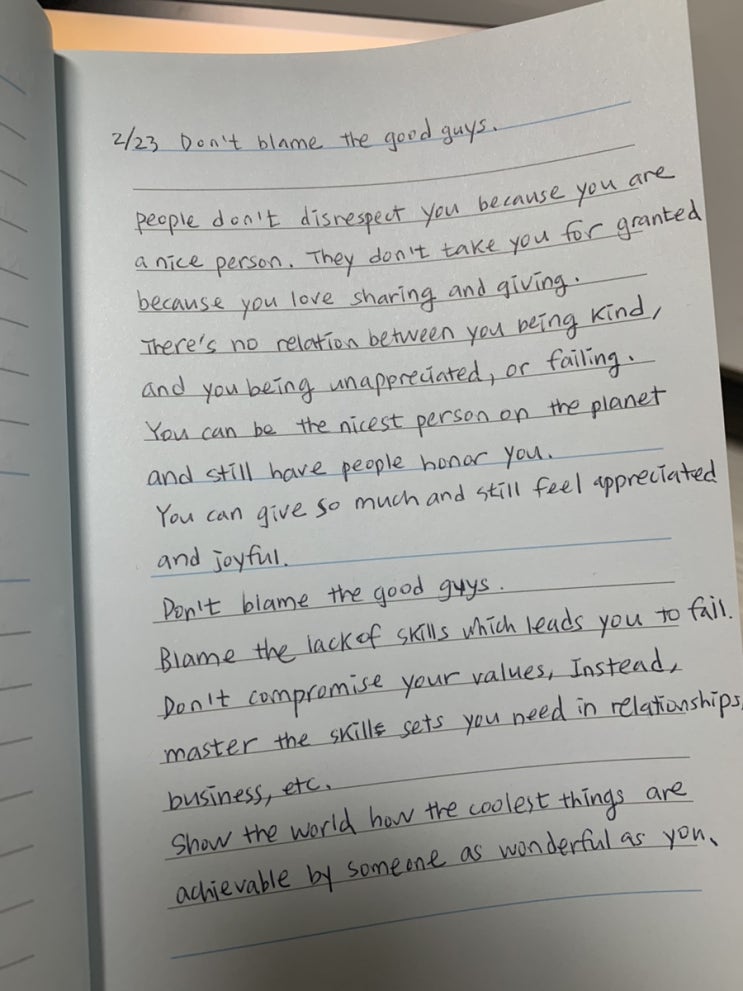 2/23 Don't blame the good guys.
people don't disrespect you because you are
a nice person. They don't take you for granted
because you love sharing and giving.
There's no relation between you being kind,
and you being unappreciated, or failing.
You can be the nicest person on the planet
and still have people honor you.
You can give so much and still feel appreciated
and joyful.
Don't blame the good guys.
Blame the lack of skills which leads you to fail.
Don't compromise your values, Instead,
master the skills sets you need in relationships,
business, etc.
Show the world how the coolest things are
achievable by someone as wonderful as you.